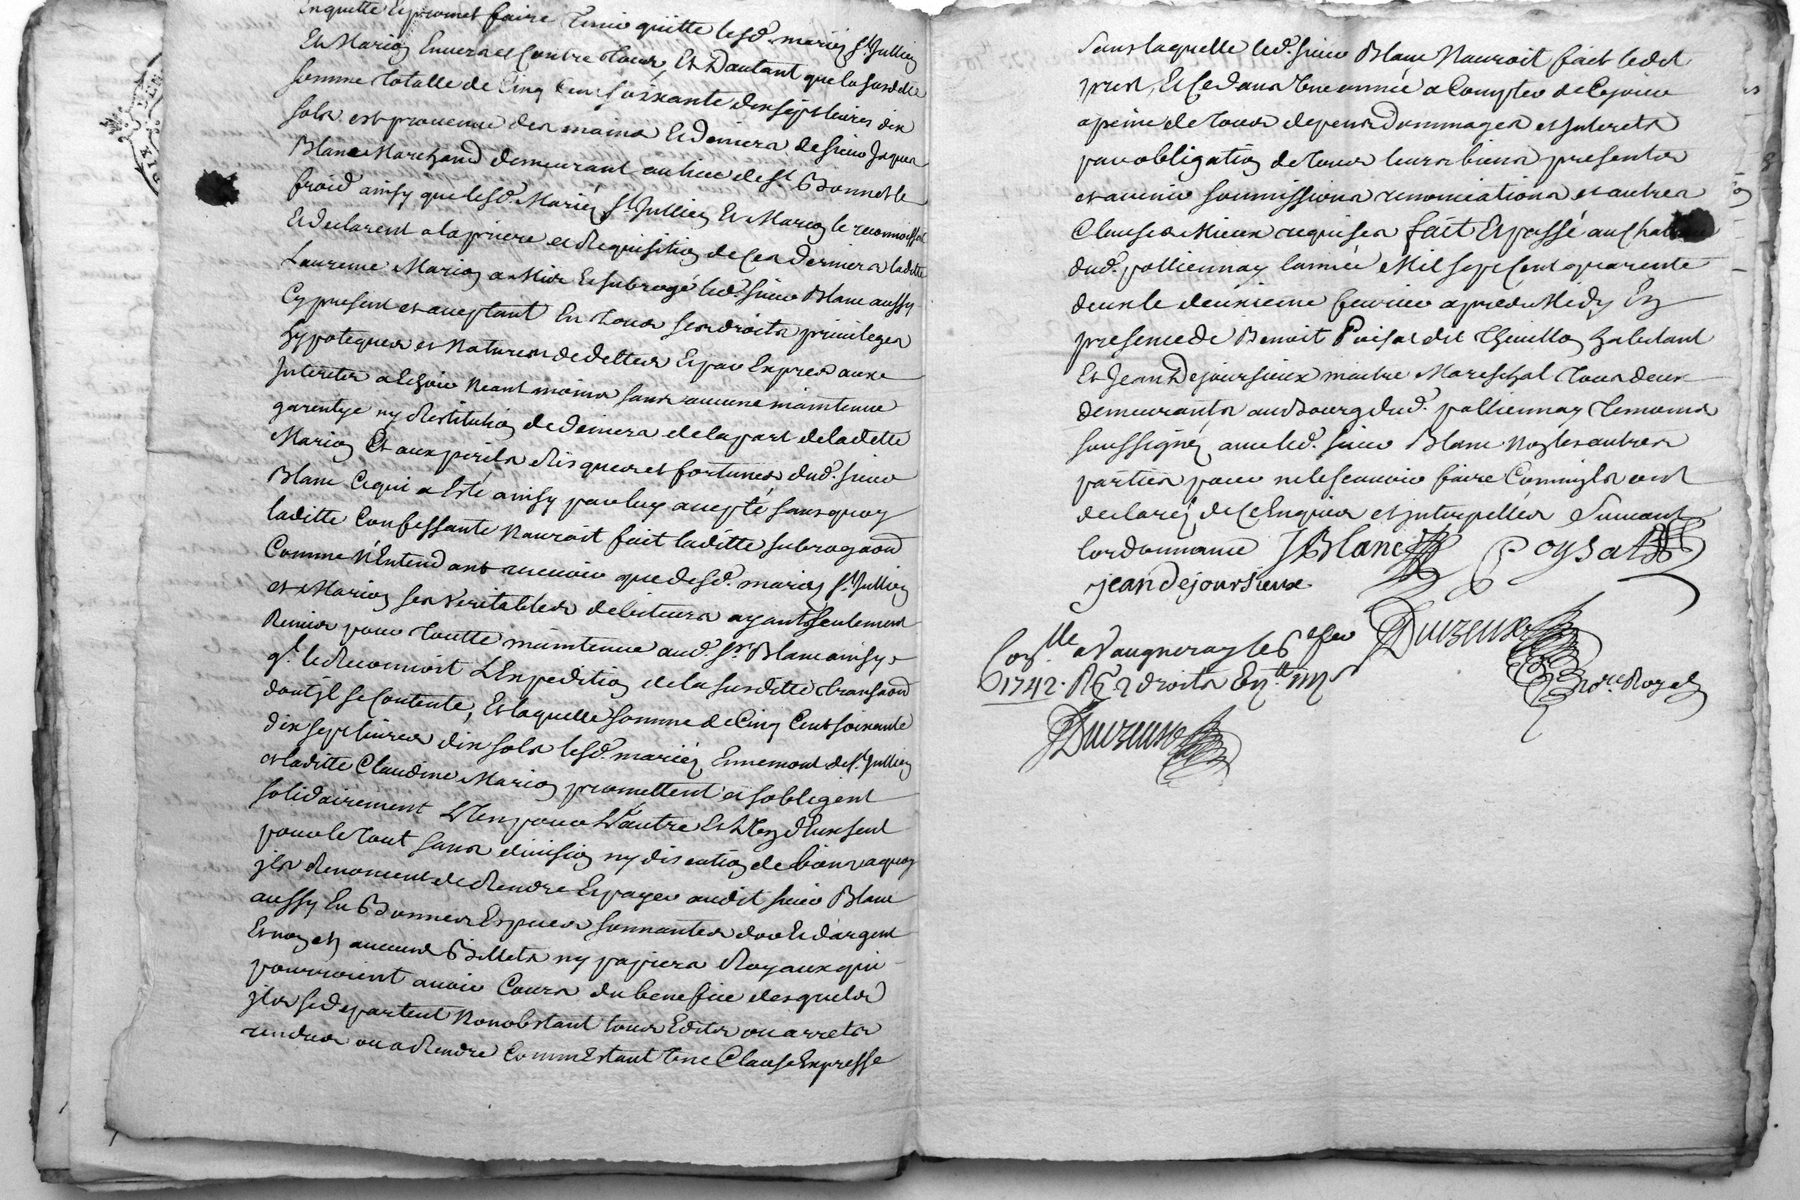 Enquitte et promet faire tenir quitte lesd. mariéz St Jullien
Et Marion Envers et Contre tous, Et Dautant que la susditte
somme totalle de Cinq Cent soixante dix sept livres dix
sols est provenue des mains et deniers de sieur Jaques
Blanc Marchand demeurant au lieu de St Bonnet le
froid ainsy que lesd. Mariéz St Jullien Et Marion le reconnoissent
et declarent a la priere et Requisition de Ces derniers laditte
Laurence Marion a Mis et subrogé led. sieur Blanc aussy
Cy present et aceptant En tous ses droits privileges
hypoteques et Natures de dettes et par Exprès aux
Interets a Echoir Neantmoins sans aucune maintenue
garentye ny Restitution de deniers de la part de laditte
Marion Et aux perils Risques et fortunes dud. sieur
Blanc Ce qui a Esté ainsy par luy acepté sans quoy
laditte Confessante N'auroit fait laditte subrogaon
Comme N'Entendant avoir que desd. mariéz St Jullien
et Marion ses veritables debiteurs ayant seulement
Remis pour toutte maintenue aud. Sr Blanc ainsy
ql. le Reconnoit L'Expedition de la susditte transaon
dont jl se Contente, Et laquelle somme de Cinq Cent soixante
dix sept livres dix sols lesd. mariéz Ennemont de St Jullien
et laditte Claudine Marion promettent et s'obligent
solidairement L'Un pour L'autre Et L'Un d'Eux seul
pour le tout sans division ny discution de biens a quoy
jls Renoncent de Rendre et payer audit sieur Blanc
aussy En Bonnes Especes sonnantes d'or et d'argent
et non en aucuns Billets ny papiers Royaux qui
pourroient avoir Cours du benefice desquels
jls se departent Nonobstant tous Edits ou arrets
rendus ou a Rendre Comm'Estant Une Clause Expresse
sans laquelle led. sieur Blanc N'auroit fait ledit
prest, Et Ce dans Une année a Compter de Ce jour
a peine de tous depens dommages et Interets
par obligation de tous leurs biens presents
et a venir soumissions renonciations et autres
Clauses Mieux requises fait Et passé au Chateau
dud. pollienay l'année Mil sept Cent quarente
deux le deuxieme fevrier apres Midy En
presence de Benoit Poisat dit Thevillon habitant
Et Jean Dejoursieux maitre Mareschal tous deux
demeurants au Bourg dud. pollienay temoins
soussignéz avec led. sieur Blanc Non les autres
parties pour ne le scavoir faire Comm'jls ont
declaréz de Ce Enquis et Interpellés suivant
l'ordonnance J Blanc Poysat
jean dejoursieux
Conllé a Vaugneray le 6e fer Duizeux
1742. R 2 droits En.tt Nore Royal
Duizeux